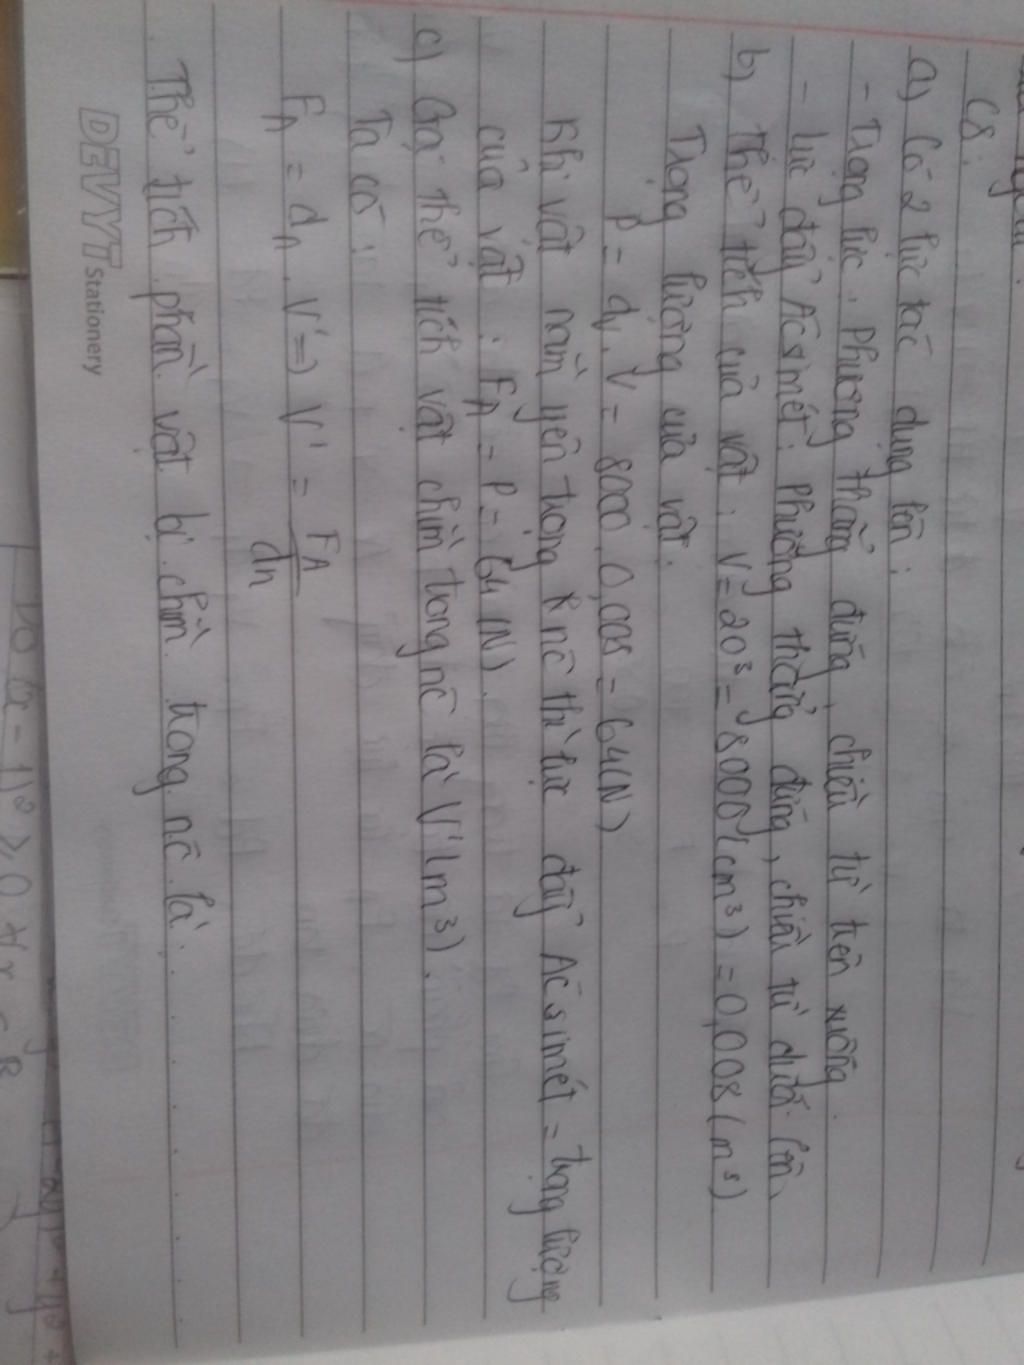 C8:
a) Có 2 lực tác dụng lên:
- Trọng lực: Phương thẳng đứng, chiều từ trên xuống.
- Lực đẩy Ácsimét: Phương thẳng đứng, chiều từ dưới lên.
b) Thể tích của vật: V = 20³ = 8000 (cm³) = 0,008 (m³)
Trọng lượng của vật:
P = dv. V = 8000. 0,008 = 64(N)
Khi vật nằm yên trong nc thì lực đẩy Ácsimét = trọng lượng
của vật: FA = P = 64 (N).
c) Gọi thể tích vật chìm trong nc là V' (m³).
Ta có:
FA = dn. V' => V' = FA/dn
Thể tích phần vật bị chìm trong nc là:
DEVYT stationery